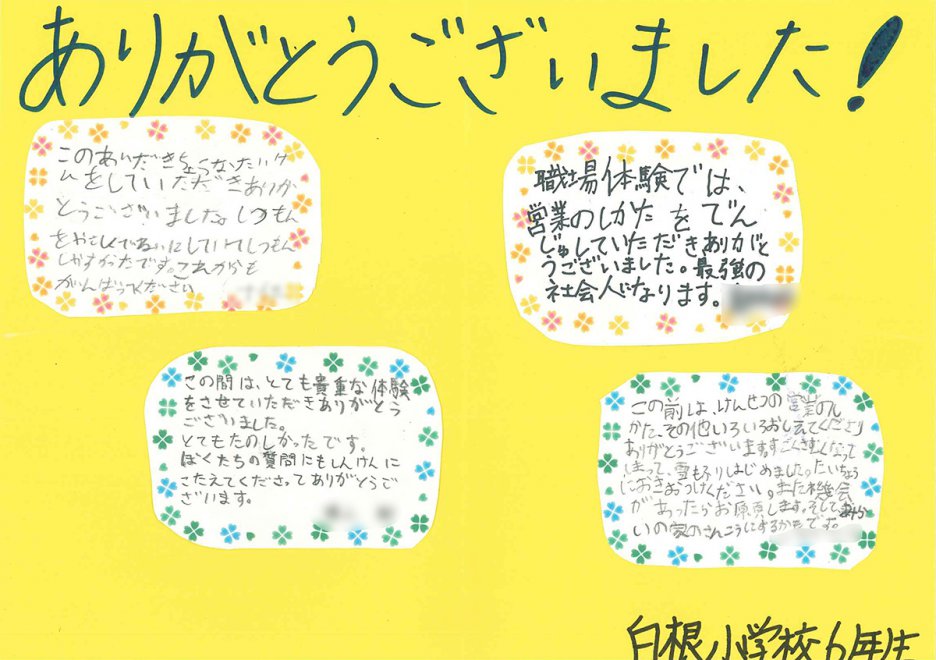 ありがとうございました!
このあいだきちょくなたいけ
んをしていただきありが
とうございました。しつもん
をやさしくていねいにしていてしつもん
しやすかったです。これからも
がんばってください
職場体験では、
営業のしかたをでん
じゅしていただきありがと
うございました。最強の
社会人になります。
この間は、とても貴重な体験
をさせていただきありがとう
ございました。
とてもたのしかったです。
ぼくたちの質問にもしんけんに
こたえてくださってありがとうご
ざいます。
この前は、けんせつの営業のし
かた、その他いろいろおしえてくださり
ありがとうございます。すごくさむくなって
しまって、雪もふりはじめました。たいちょう
におきおつけください。また機会
があったらお願いします。そして、
の家のさんこうにするかもです。
白根小学校6年生